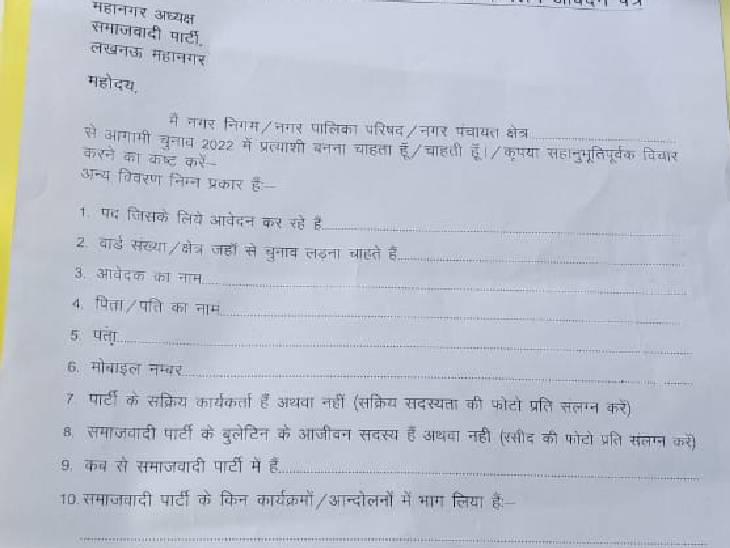 आवेदन पत्र
महानगर अध्यक्ष
समाजवादी पार्टी,
लखनऊ महानगर
महोदय,
मै नगर निगम/नगर पालिका परिषद/नगर पंचायत क्षेत्र
से आगामी चुनाव 2022 में प्रत्याशी बनना चाहता हूँ/चाहती हूँ।/कृपया सहानुभूतिपूर्वक विचार
करने का कष्ट करें–
अन्य विवरण निम्न प्रकार हैं:–
1. पद जिसके लिये आवेदन कर रहे है
2. वार्ड संख्या/क्षेत्र जहाँ से चुनाव लड़ना चाहते हैं
3. आवेदक का नाम
4. पिता/पति का नाम
5. पता
6. मोबाइल नम्बर
7. पार्टी के सक्रिय कार्यकर्ता हैं अथवा नहीं (सक्रिय सदस्यता की फोटो प्रति संलग्न करें)
8. समाजवादी पार्टी के बुलेटिन के आजीवन सदस्य हैं अथवा नही (रसीद की फोटो प्रति संलग्न करें)
9. कब से समाजवादी पार्टी में हैं
10. समाजवादी पार्टी के किन कार्यक्रमों/आन्दोलनों में भाग लिया हैः–